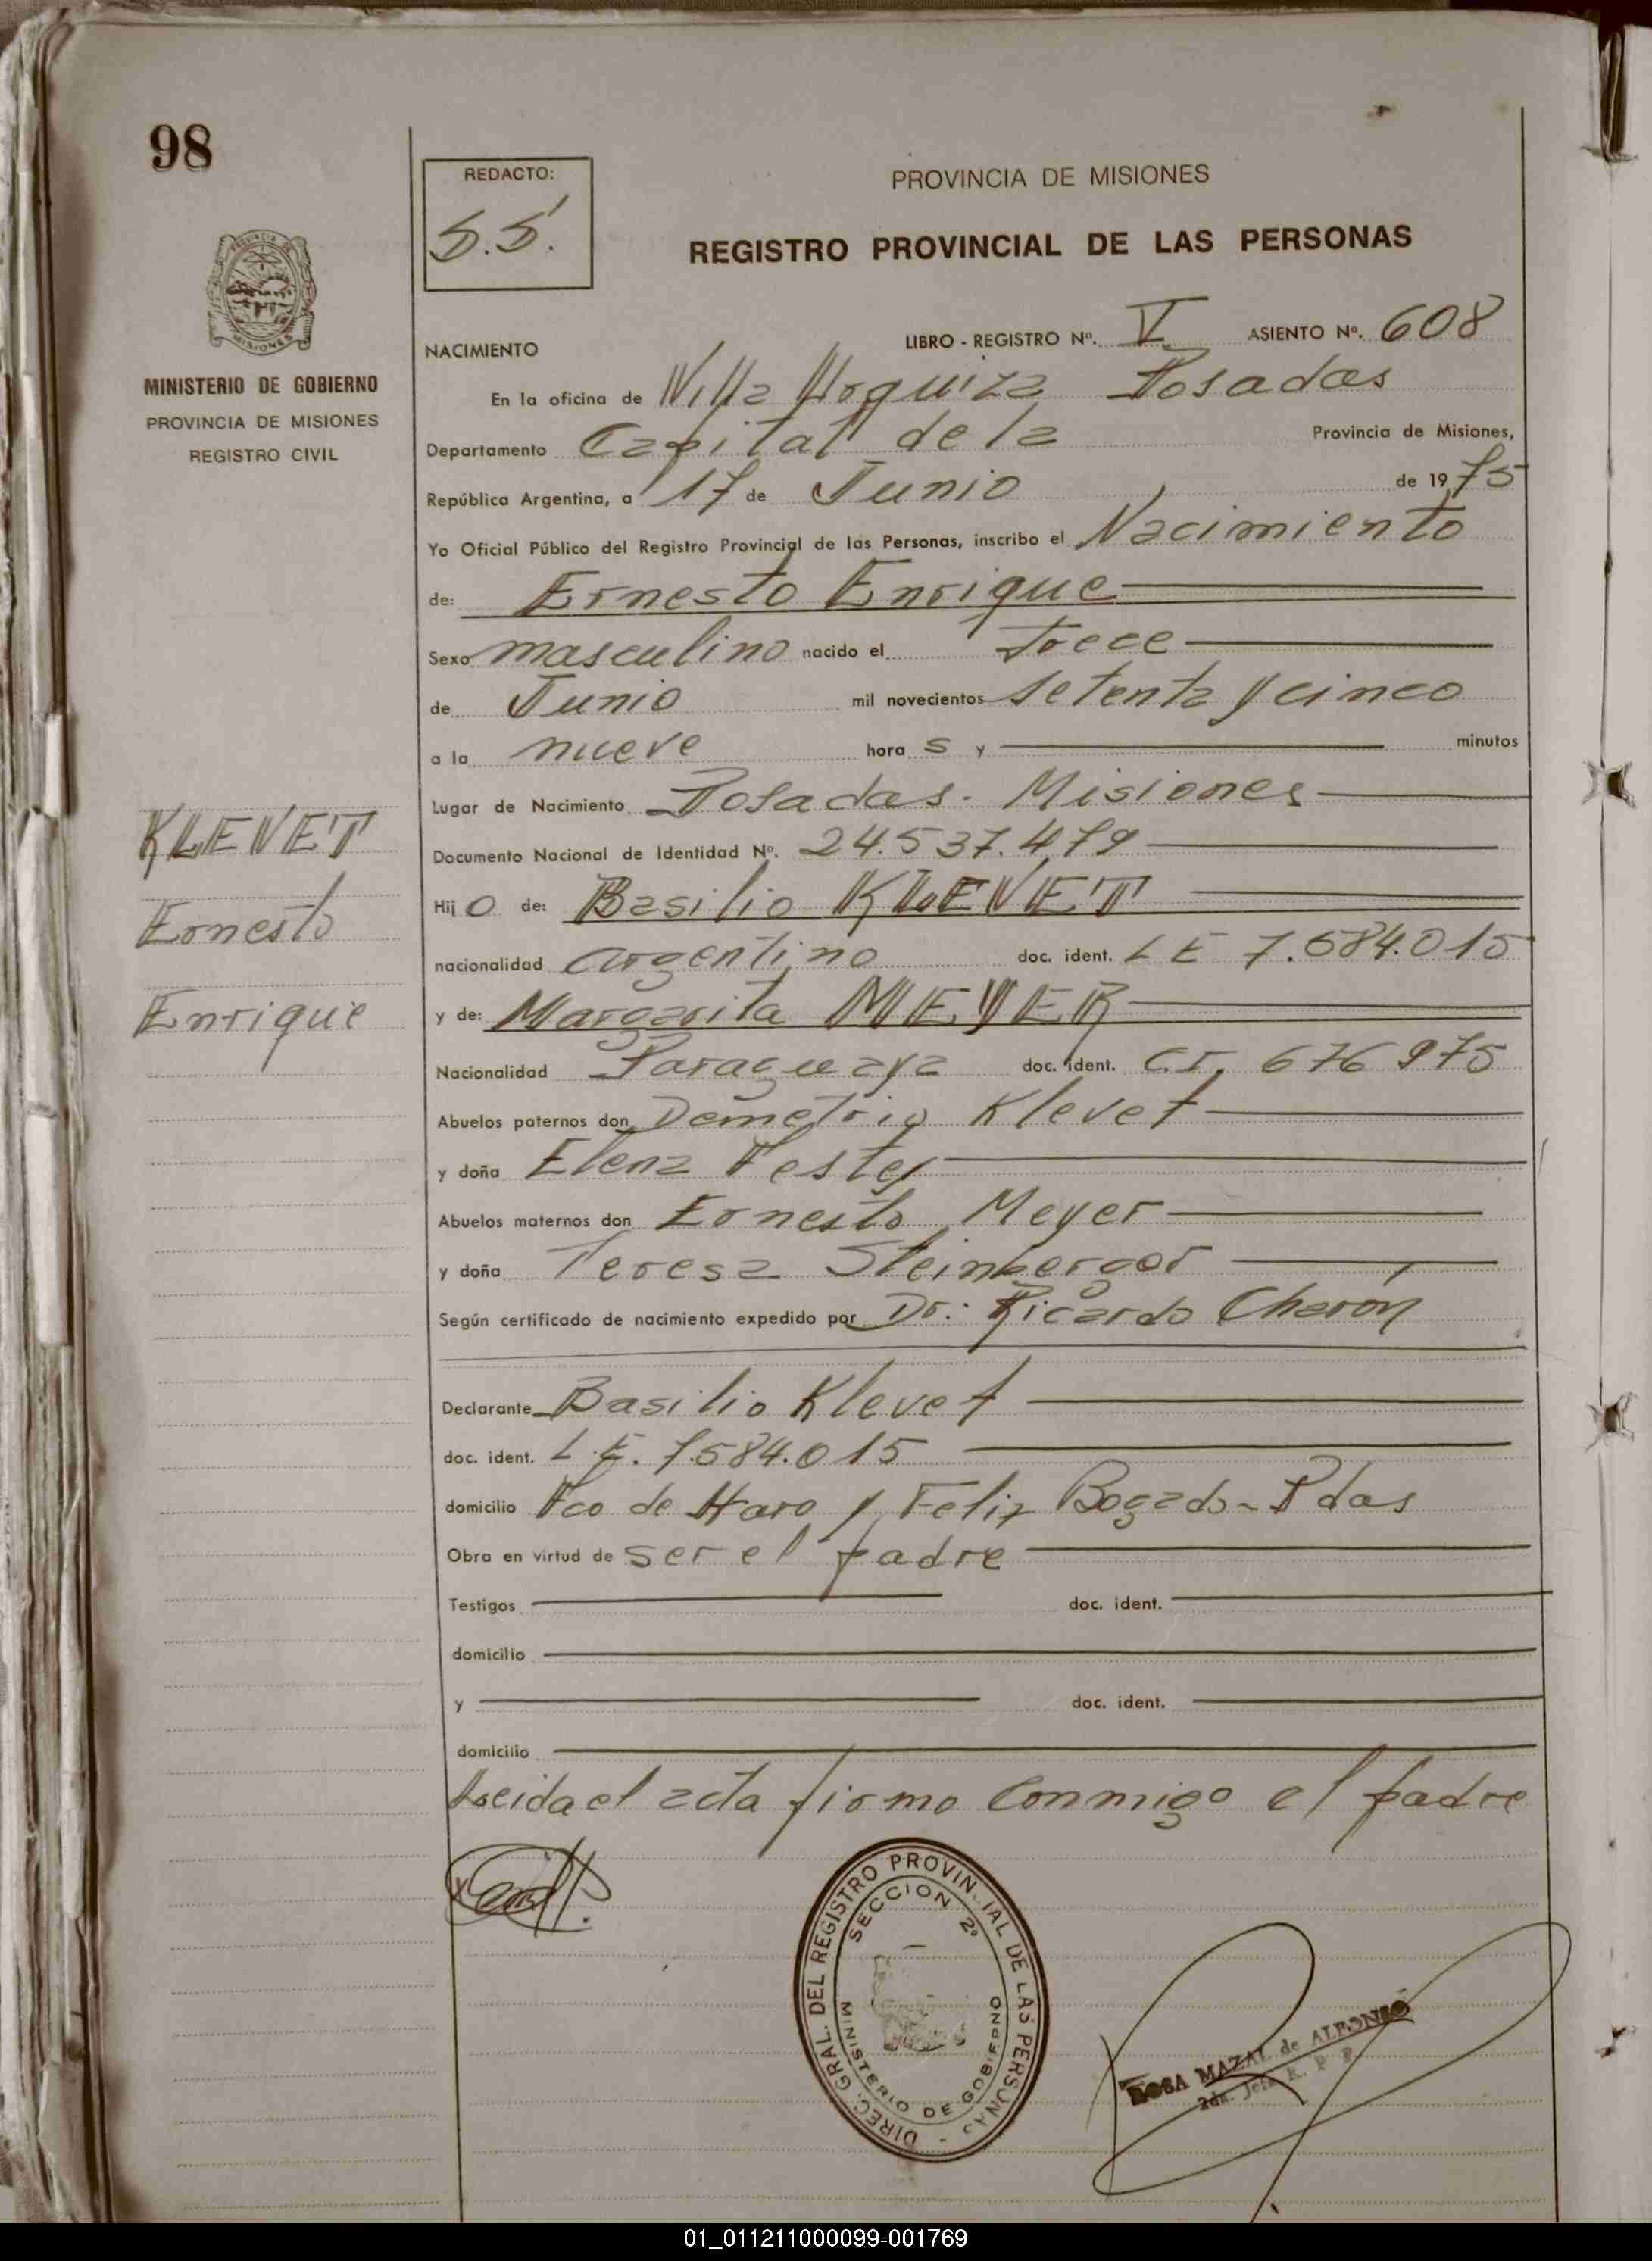 98
REDACTO:
S.S.
PROVINCIA DE MISIONES
REGISTRO PROVINCIAL DE LAS PERSONAS
MISIONES
MINISTERIO DE GOBIERNO
PROVINCIA DE MISIONES
REGISTRO CIVIL
LIBRO - REGISTRO Nº. V ASIENTO Nº. 608
NACIMIENTO
En la oficina de Villa Urquiza Posadas
Departamento Capital de la Provincia de Misiones,
República Argentina, a 17 de Junio de 1975
Yo Oficial Público del Registro Provincial de las Personas, inscribo el Nacimiento
de: Ernesto Enrique
Sexo masculino nacido el trece
de Junio mil novecientos setenta y cinco
a la nueve hora s y minutos
Lugar de Nacimiento Posadas. Misiones
KLEVET
Ernesto
Enrique
Documento Nacional de Identidad Nº. 24.537.479
Hijo de: Basilio KLEVET
nacionalidad argentino doc. ident. L E 7.584.015
y de: Margarita MEYER
Nacionalidad Paraguaya doc. ident. C.I. 676 975
Abuelos paternos don Demetrio Klevet
y doña Elena
Abuelos maternos don Ernesto Meyer
y doña Teresa Steinberger
Según certificado de nacimiento expedido por Dr: Ricardo
Declarante Basilio Klevet
doc. ident. L.E. 7.584.015
domicilio Fco de Haro y Feliz Bogado - Pdas
Obra en virtud de ser el padre
Testigos doc. ident.
domicilio
y doc. ident.
domicilio
Leida el acta firmo conmigo el padre
DIREC. GRAL. DEL REGISTRO PROVINCIAL DE LAS PERSONAS -
SECCION 2º
MINISTERIO DE GOBIERNO
ROSA MAZAL de ALFONSO
2da. Jefa R. P. P.
01_011211000099-001769